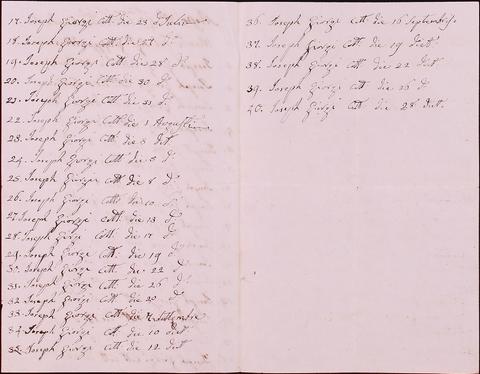 17. Joseph Giorgi Cott. die 23 d Julii
18. Joseph Giorgi Cott. die 27 do
19. Joseph Giorgi Cott. die 28 do
20. Joseph Giorgi Cott. die 30 do
21. Joseph Giorgi Cott. die 31 do
22. Joseph Giorgi Cott. die 1 Augusti
23. Joseph Giorgi Cott. die 3 dit
24. Joseph Giorgi Cott. die 6 do
25. Joseph Giorgi Cott. die 8 do
26. Joseph Giorgi Cott. die 10 do
27. Joseph Giorgi Cott. die 13 do
28. Joseph Giorgi Cott. die 17 do
29. Joseph Giorgi Cott. die 19 do
30. Joseph Giorgi Cott. die 22 do
31. Joseph Giorgi Cott. die 26 do
32. Joseph Giorgi Cott. die 30 do
33. Joseph Giorgi Cott. die Settembre
34. Joseph Giorgi Cott. die 10 dit
35. Joseph Giorgi Cott. die 12 dit
36. Joseph Giorgi Cott. die 16 Septembris
37. Joseph Giorgi Cott. die 19 dit
38. Joseph Giorgi Cott. die 22 dit
39. Joseph Giorgi Cott. die 26 do
40. Joseph Giorgi Cott. die 28 dit